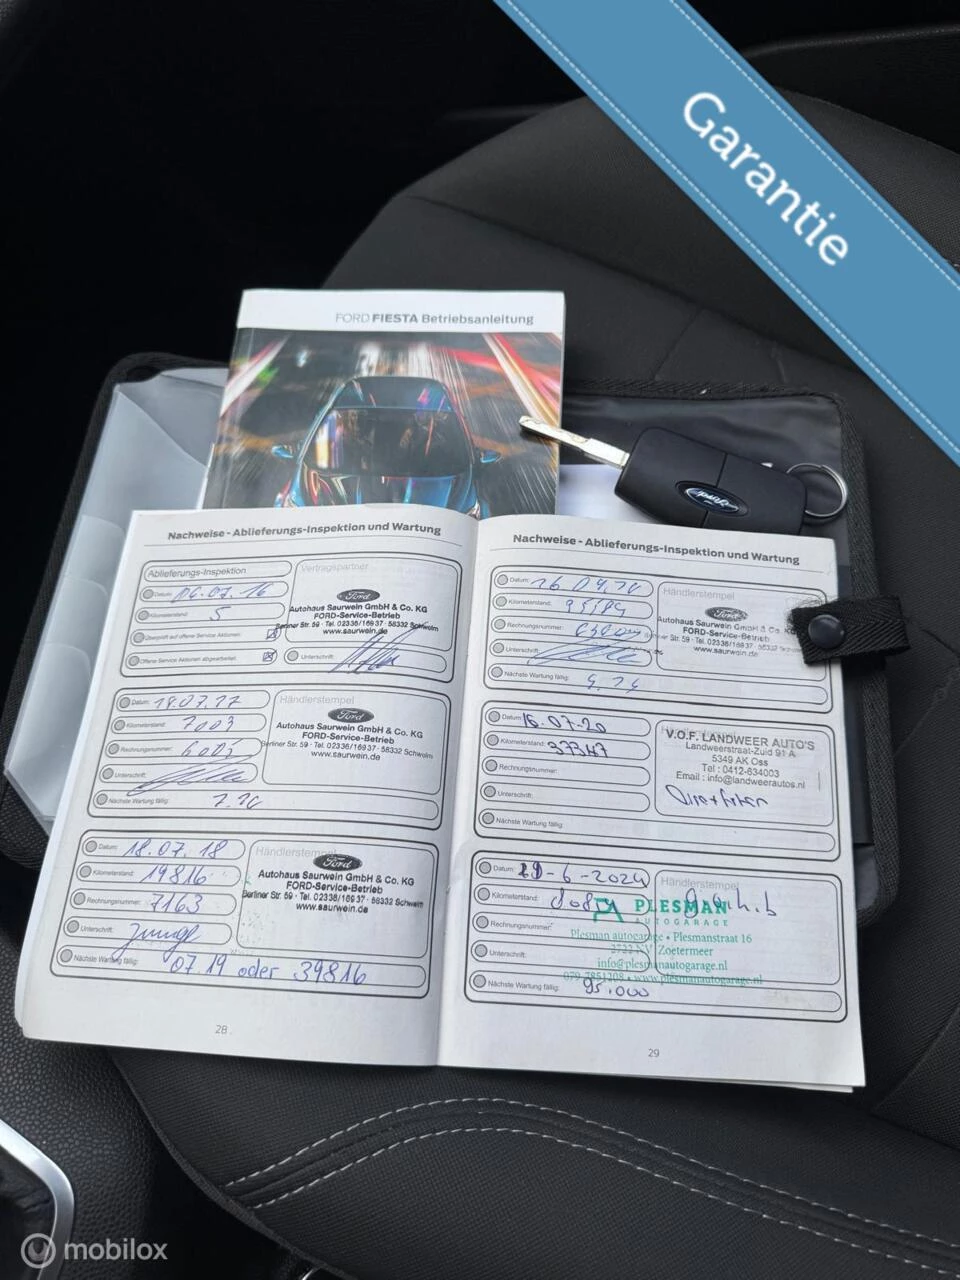 Garantie
FORD FIESTA Betriebsanleitung
Nachweise - Ablieferungs-Inspektion und Wartung
Ablieferungs-Inspektion
Vertragspartner
Datum: 06.07.16
Kilometerstand: 5
Überprüft auf offene Service Aktionen:
Offene Service Aktionen abgearbeitet:
Ford
Autohaus Saurwein GmbH & Co. KG
FORD-Service-Betrieb
Berliner Str. 59 · Tel. 02336/16937 · 58332 Schwelm
www.saurwein.de
Unterschrift:
Datum: 18.07.17
Kilometerstand: 7003
Rechnungsnummer:
Unterschrift:
Nächste Wartung fällig:
Händlerstempel
Ford
Autohaus Saurwein GmbH & Co. KG
FORD-Service-Betrieb
Berliner Str. 59 · Tel. 02336/16937 · 58332 Schwelm
www.saurwein.de
Datum: 18.07.18
Kilometerstand: 19816
Rechnungsnummer: 7163
Unterschrift:
Nächste Wartung fällig: 07.19 oder 39816
Händlerstempel
Ford
Autohaus Saurwein GmbH & Co. KG
FORD-Service-Betrieb
Berliner Str. 59 · Tel. 02336/16937 · 58332 Schwelm
www.saurwein.de
28
Nachweise - Ablieferungs-Inspektion und Wartung
Datum:
Kilometerstand:
Rechnungsnummer:
Unterschrift:
Nächste Wartung fällig:
Händlerstempel
Ford
Autohaus Saurwein GmbH & Co. KG
FORD-Service-Betrieb
Berliner Str. 59 · Tel. 02336/16937 · 58332 Schwelm
www.saurwein.de
Datum: 16.07.20
Kilometerstand: 37347
Rechnungsnummer:
Unterschrift:
Nächste Wartung fällig:
V.O.F. LANDWEER AUTO'S
Landweerstraat-Zuid 91 A
5349 AK Oss
Tel : 0412-634003
Email : info@landweerautos.nl
Datum: -6-2024
Kilometerstand:
Rechnungsnummer:
Unterschrift:
Nächste Wartung fällig: 95.000
Händlerstempel
PLESMAN
AUTOGARAGE
Plesman autogarage • Plesmanstraat 16
Zoetermeer
info@plesmanautogarage.nl
079-7851208 • www.plesmanautogarage.nl
29
mobilox